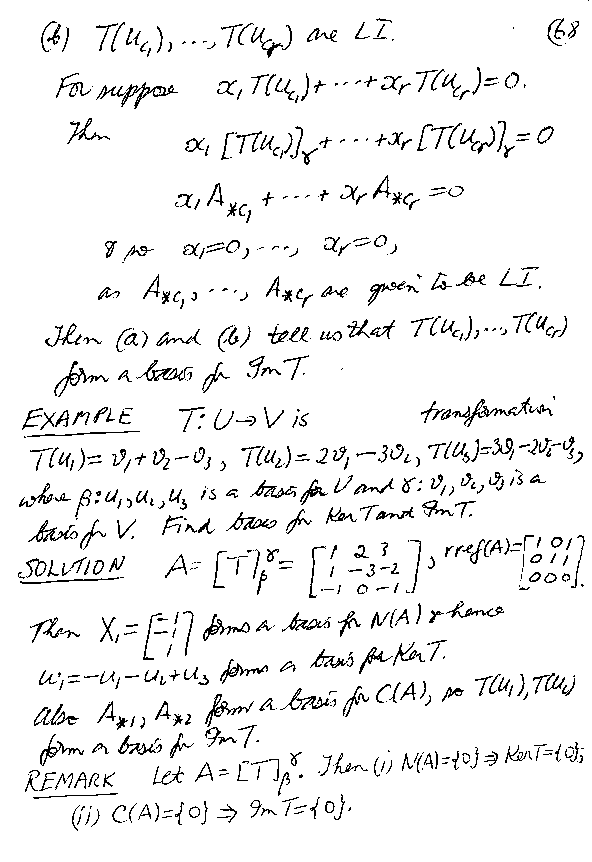 (b) T(u_{c_1}), ..., T(u_{c_r}) are LI. (68
For suppose x_1 T(u_{c_1}) + ... + x_r T(u_{c_r}) = 0.
Then x_1 [T(u_{c_1})]_γ + ... + x_r [T(u_{c_r})]_γ = 0
x_1 A_{*c_1} + ... + x_r A_{*c_r} = 0
& so x_1=0, ..., x_r=0,
as A_{*c_1}, ..., A_{*c_r} are given to be LI.
Then (a) and (b) tell us that T(u_{c_1}), ..., T(u_{c_r})
form a basis for Im T.
EXAMPLE T: U → V is transformation
T(u_1) = v_1 + v_2 - v_3, T(u_2) = 2v_1 - 3v_2, T(u_3) = 3v_1 - 2v_2 - v_3,
where β: u_1, u_2, u_3 is a basis for U and γ: v_1, v_2, v_3 is a
basis for V. Find bases for Ker T and Im T.
SOLUTION A = [T]_β^γ = [1 2 3; 1 -3 -2; -1 0 -1], rref(A) = [1 0 1; 0 1 1; 0 0 0].
Then X_1 = [-1; -1; 1] forms a basis for N(A) & hence
w_1 = -u_1 - u_2 + u_3 forms a basis for Ker T.
Also A_{*1}, A_{*2} form a basis for C(A), so T(u_1), T(u_2)
form a basis for Im T.
REMARK Let A = [T]_β^γ. Then (i) N(A)={0} ⇒ Ker T={0};
(ii) C(A)={0} ⇒ Im T={0}.